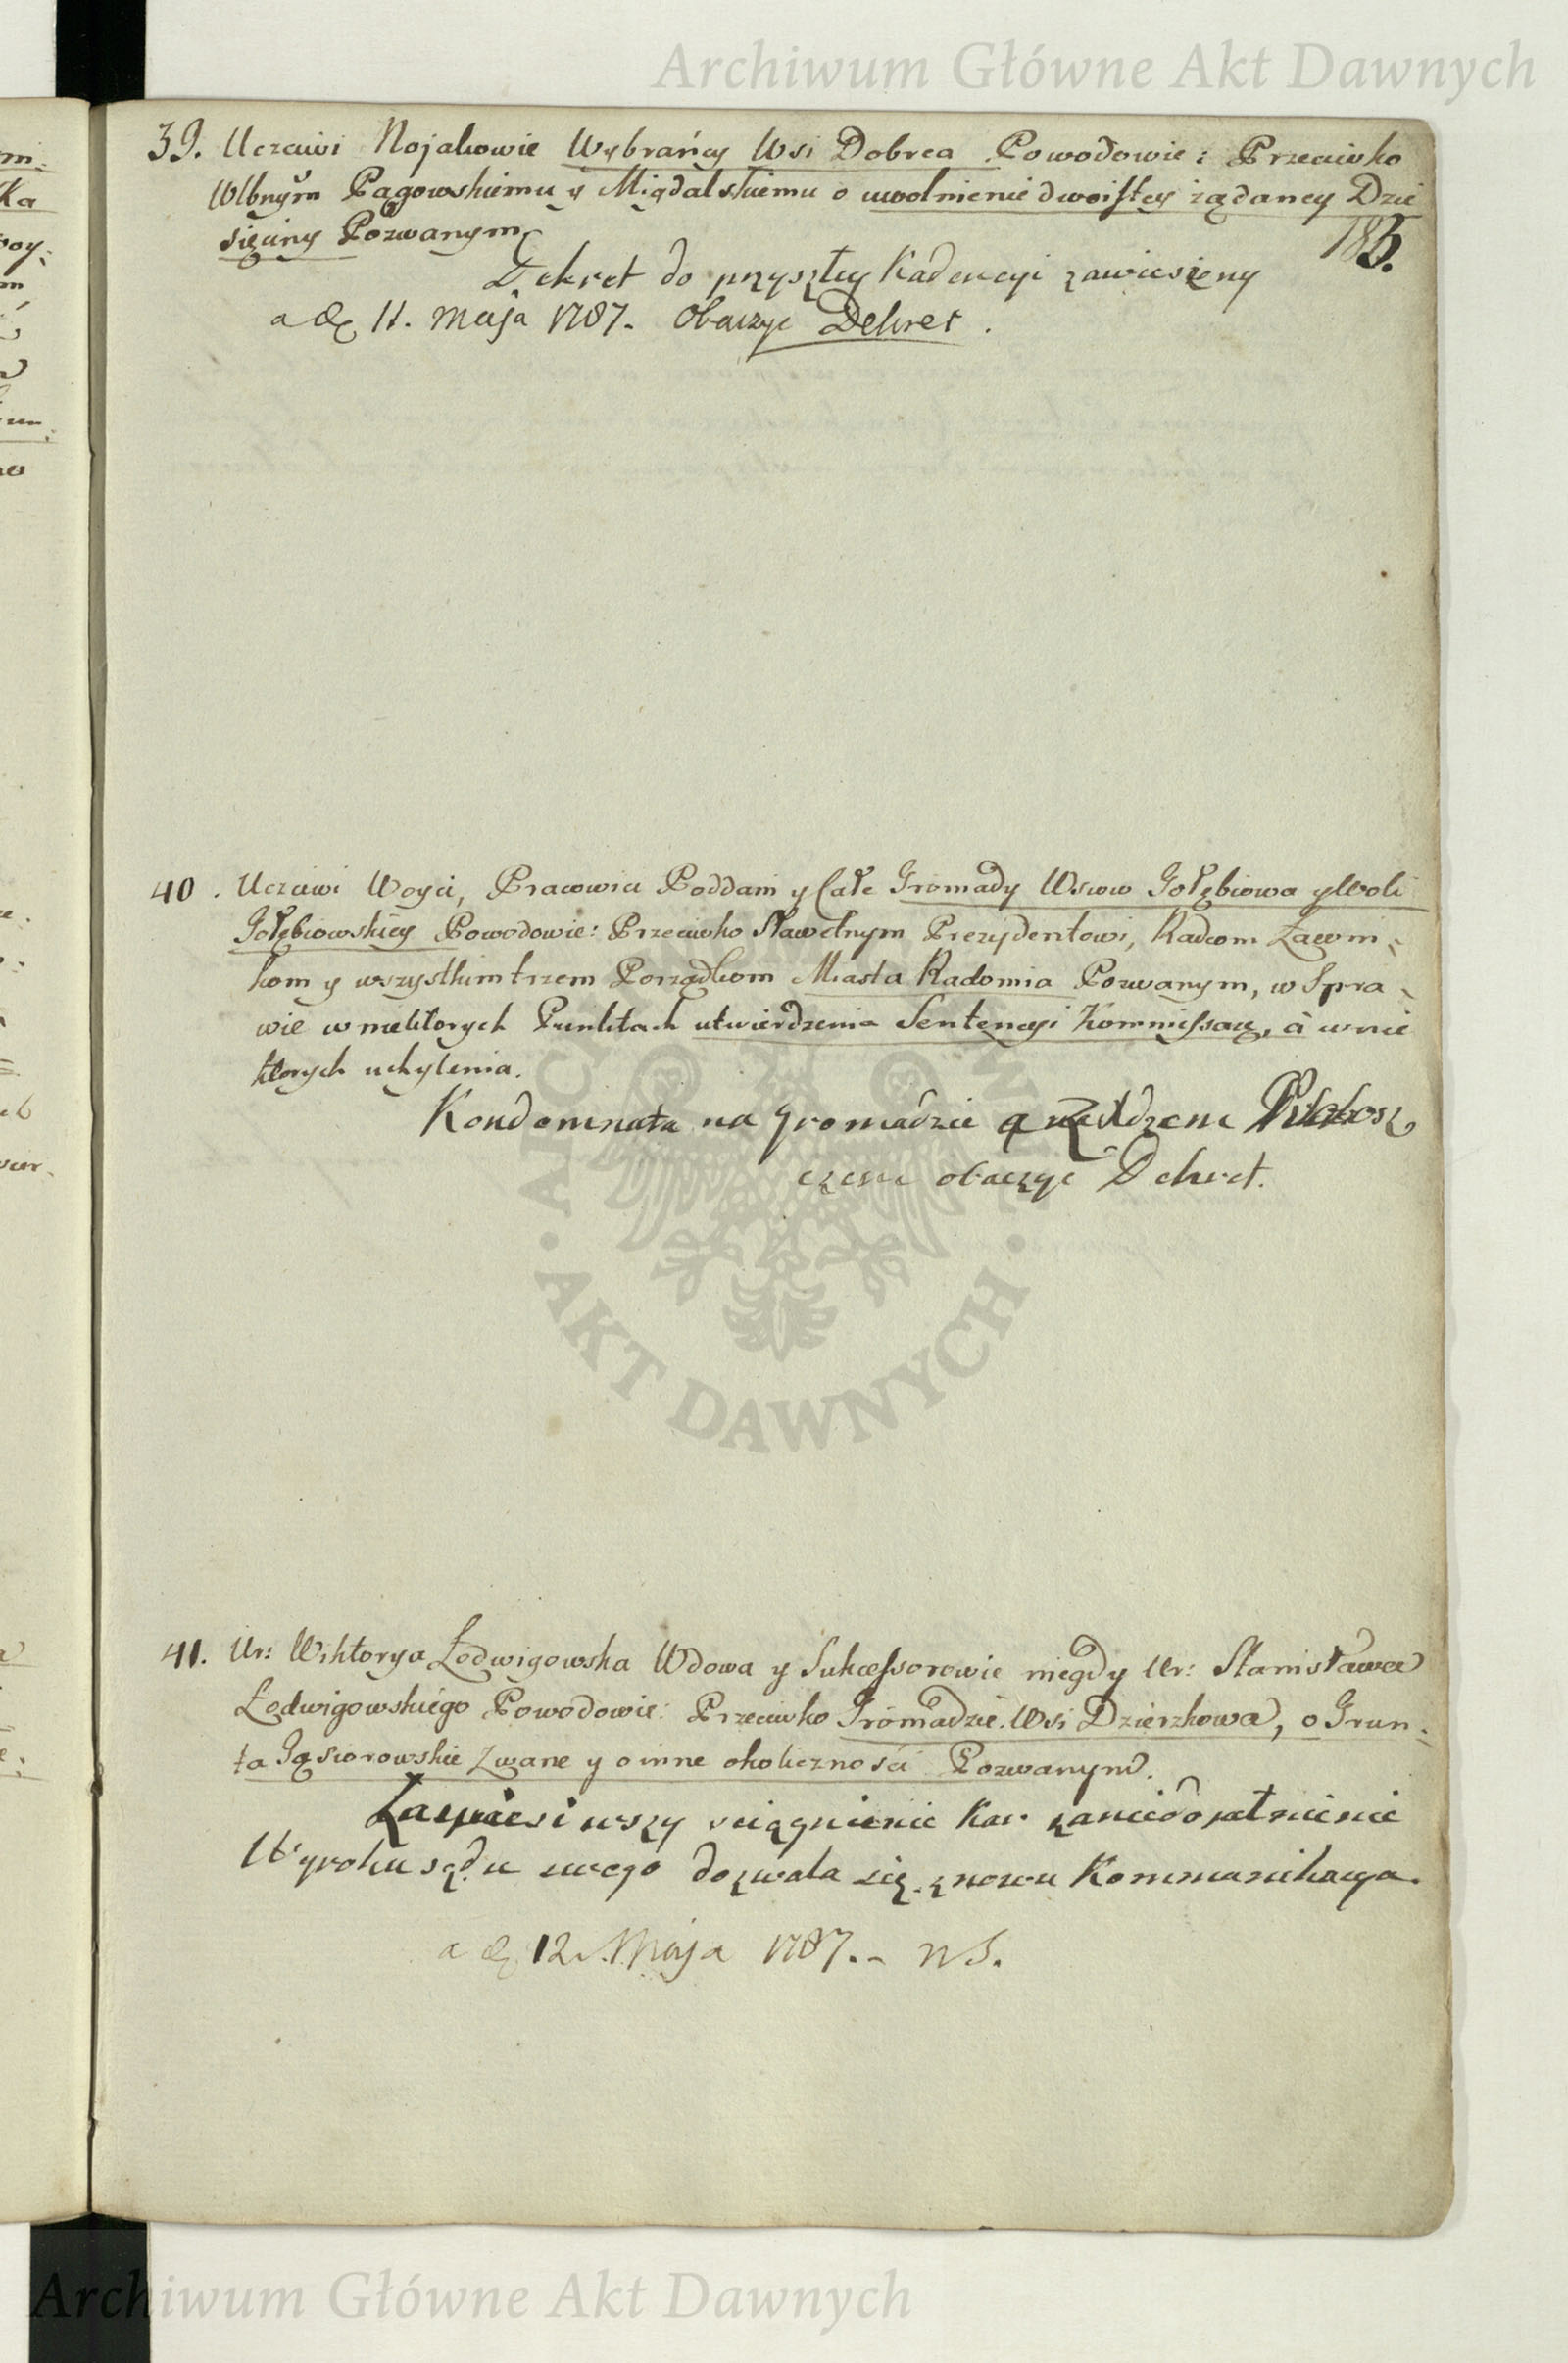 Archiwum Główne Akt Dawnych
39. Uczciwi Nojakowie Wybrańcy Wsi Dobrca Powodowie: Przeciwko
Wlbnym Pągowskiemu y Migdalskiemu o uwolnienie dwoistey żądaney Dzie
sięciny Pozwanym
185.
Dekret do przyszłey Kadencyi zawieszony
a d 11. Maja 1787. Obaczyć Dekret.
40. Uczciwi Woyci, Pracowici Poddani y Całe Gromady Wsiow Gołębiowa y Woli
Gołębiowskiey Powodowie: Przeciwko Sławetnym Prezydentowi, Radcom Ławni-
kom y wszystkim trzem Porządkom Miasta Radomia Pozwanym, w Spra-
wie w niektorych Punktach utwierdzenia Sentencyi Kommissarz, à w nie
ktorych uchylenia.
Kondemnata na Gromadzie
czem obaczyć Dekret.
ARCH
WNE
AKT DAWNYCH
41. Ur: Wiktorya Łodwigowska Wdowa y Sukcessorowie niegdy Ur: Stanisława
Łodwigowskiego Powodowie: Przeciwko Gromadzie Wsi Dzierzkowa, o Grun-
ta Gąsiorowskie Zwane y o inne okoliczności Pozwanym.
Zawiesiwszy sciągnienie Kar zaniedopełnienie
Wyroku sądu swego dozwala się znowu Kommunikacya.
a d 12. Maja 1787. - NS.
Archiwum Główne Akt Dawnych